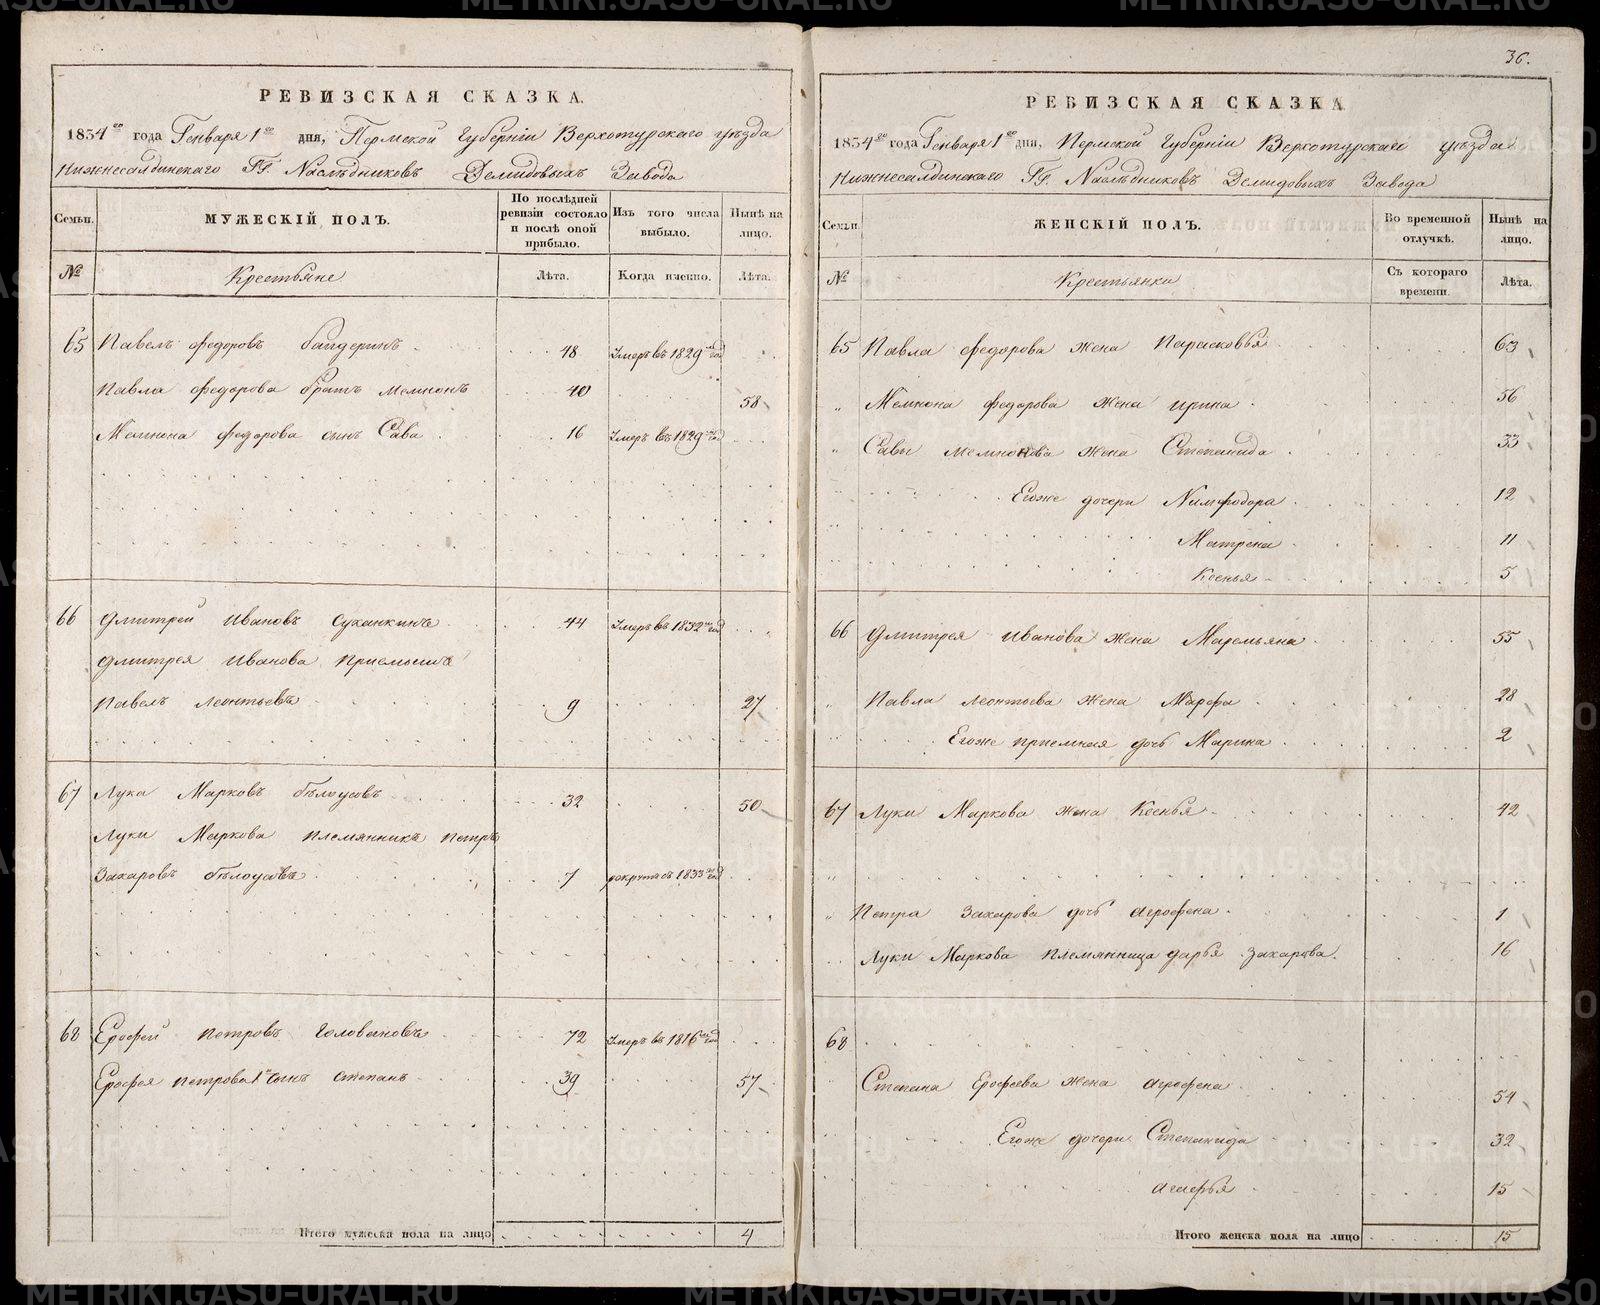 РЕВИЗСКАЯ СКАЗКА.
1834го года Генваря 1го дня, Пермской Губерніи Верхотурскаго уѣзда
Нижнесалдинскаго ГГ. Наслѣдниковъ Демидовыхъ Завода
Семьи. МУЖЕСКІЙ ПОЛЪ. По послѣдней ревизіи состояло и послѣ оной прибыло. Изъ того числа выбыло. Нынѣ на лицо.
№ Крестьяне Лѣта. Когда именно. Лѣта.
65 Павелъ Федоровъ 48 Умеръ въ 1829 год
Павла Федорова братъ Мемнонъ 40 58
Мемнона Федорова сынъ Сава 16 Умеръ въ 1829 год
66 Дмитрей Ивановъ Суханкинъ 44 Умеръ въ 1832 год
Дмитрея Иванова приемышъ
Павелъ Леонтьевъ 9 27
67 Лука Марковъ Бѣлоусовъ 32 50
Луки Маркова племянникъ Петръ
Захаровъ Бѣлоусовъ 7 рекрутъ съ 1833 год
68 Ерофей Петровъ Головановъ 72 Умеръ въ 1816 год
Ерофея Петрова 1й сынъ Степанъ 39 57
Итого мужеска пола на лицо 4
36.
РЕВИЗСКАЯ СКАЗКА
1834го года Генваря 1го дня, Пермской Губерніи Верхотурскаго уѣзда
Нижнесалдинскаго ГГ. Наслѣдниковъ Демидовыхъ Завода
Семьи. ЖЕНСКІЙ ПОЛЪ. Во временной отлучкѣ. Нынѣ на лицо.
№ Крестьянки Съ котораго времени. Лѣта.
65 Павла Федорова жена Парасковья 63
" Мемнона Федорова жена Ирина 56
" Савы Мемнонова жена Степанида 33
Егоже дочери Нимфодора 12
Матрена 11
Ксенья 5
66 Дмитрея Иванова жена Маремьяна 55
" Павла Леонтьева жена Марфа 28
Егоже приемная дочь Марина 2
67 Луки Маркова жена Ксенья 42
" Петра Захарова дочь Агрофена 1
Луки Маркова племянница Дарья Захарова 16
68
Степана Ерофеева жена Агрофена 54
Егоже дочери Степанида 32
Агафья 15
Итого женска пола на лицо 15
METRIKI.GASO-URAL.RU